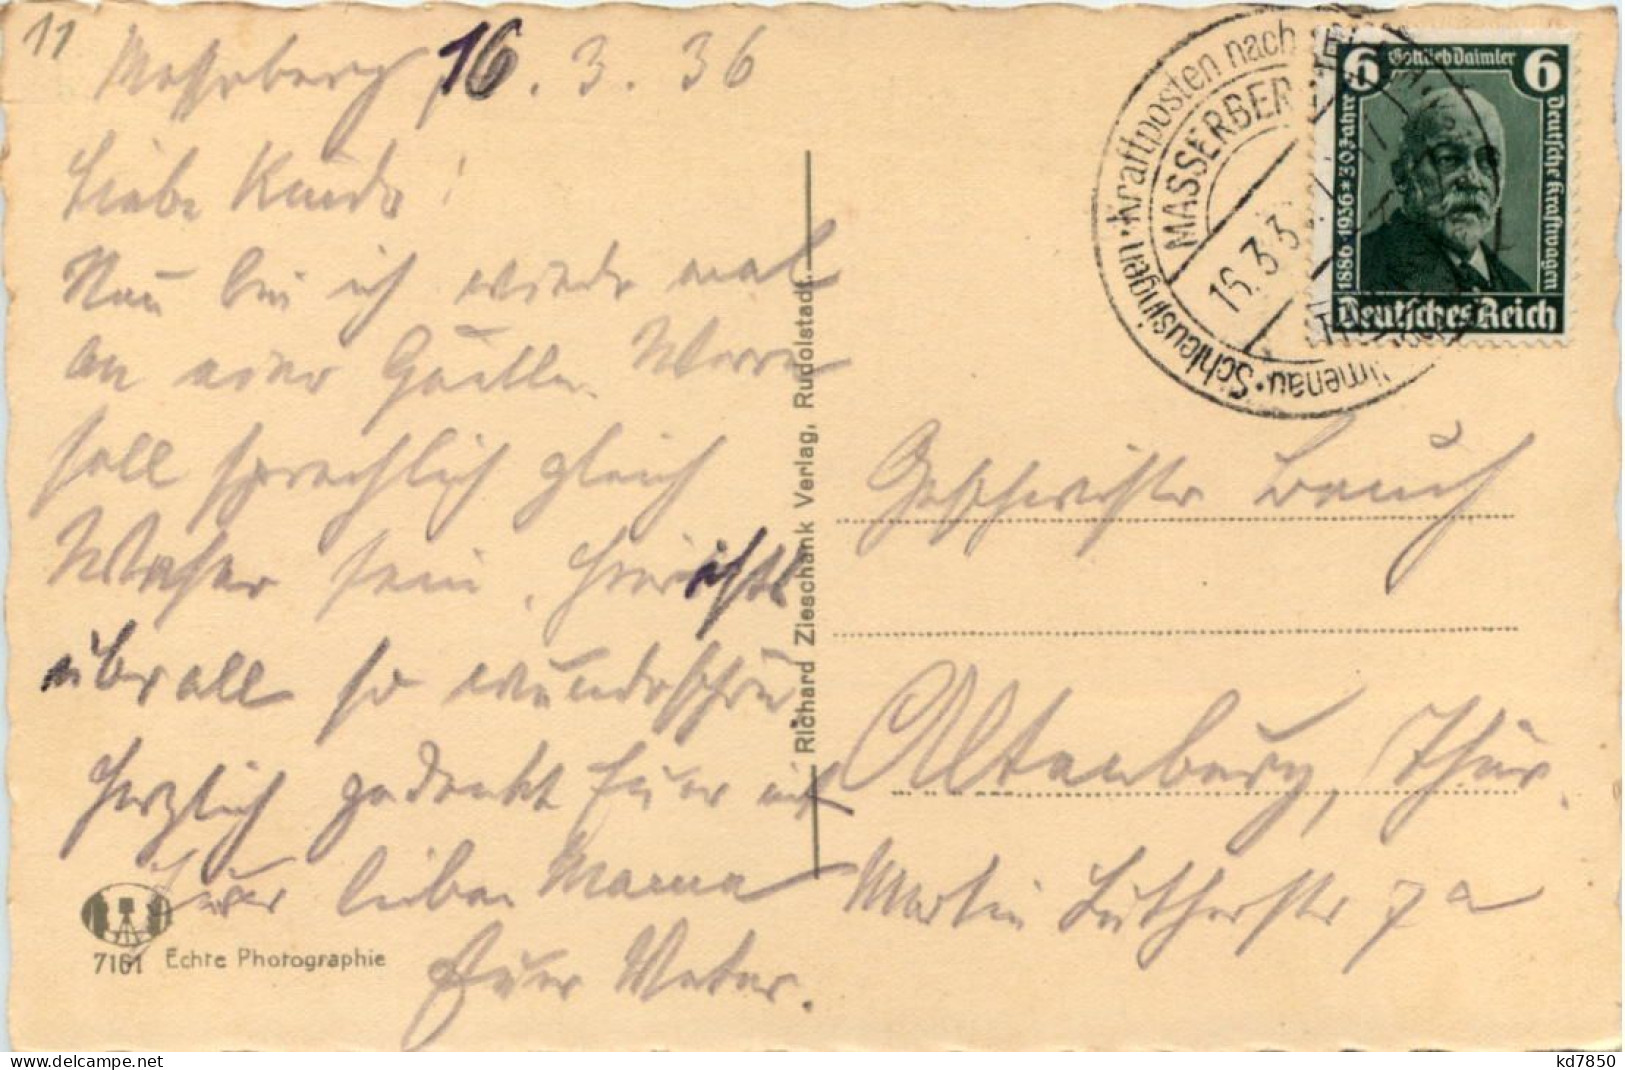 11
Masserberg 16.3.36
Liebe Kinder!
Nun bin ich wieder mal
an einer Quelle. Werra
soll sprachlich gleich
Weser sein. Hier ists
überall so wunderschön
Herzlich gedenkt Euer mit
Eurer lieben Mama
Euer Vater.
7161 Echte Photographie
Richard Zieschank Verlag, Rudolstadt.
Kraftposten nach
MASSERBER
16.3.3
Ilmenau · Schleusingen ·
6 Gottlieb Daimler 6
1886 · 1936 * 50 Jahre
Deutsche Kraftwagen
Deutsches Reich
Geschwister Bauch
Altenburg, Thür.
Martin Lutherstr 7a
www.delcampe.net
kd7850